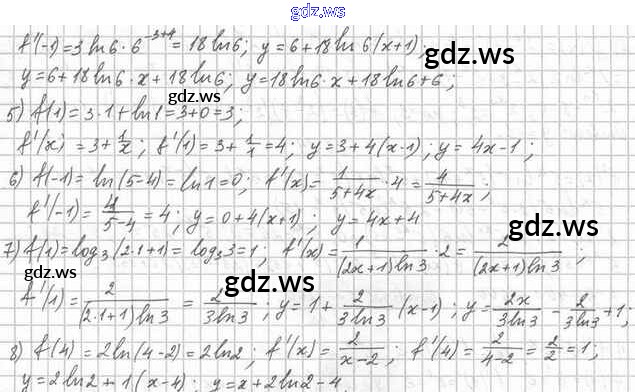 gdz.ws
f'(-1)=3 ln6·6^{-3+4}=18 ln6; y=6+18 ln6(x+1);
gdz.ws
y=6+18 ln6·x+18 ln6; y=18 ln6·x+18 ln6+6;
gdz.ws
5) f(1)=3·1+ln1=3+0=3;
f'(x)=3+1/x; f'(1)=3+1/1=4; y=3+4(x-1); y=4x-1;
6) f(-1)=ln(5-4)=ln1=0; f'(x)=1/(5+4x)·4=4/(5+4x);
f'(-1)=4/(5-4)=4; y=0+4(x+1); y=4x+4
gdz.ws
7) f(1)=log₃(2·1+1)=log₃3=1; f'(x)=1/((2x+1)ln3)·2=2/((2x+1)ln3);
gdz.ws
gdz.ws
f'(1)=2/((2·1+1)ln3)=2/(3ln3); y=1+2/(3ln3)(x-1); y=2x/(3ln3)-2/(3ln3)+1;
8) f(4)=2ln(4-2)=2ln2; f'(x)=2/(x-2); f'(4)=2/(4-2)=2/2=1;
gdz.ws
gdz.ws
y=2ln2+1(x-4); y=x+2ln2-4